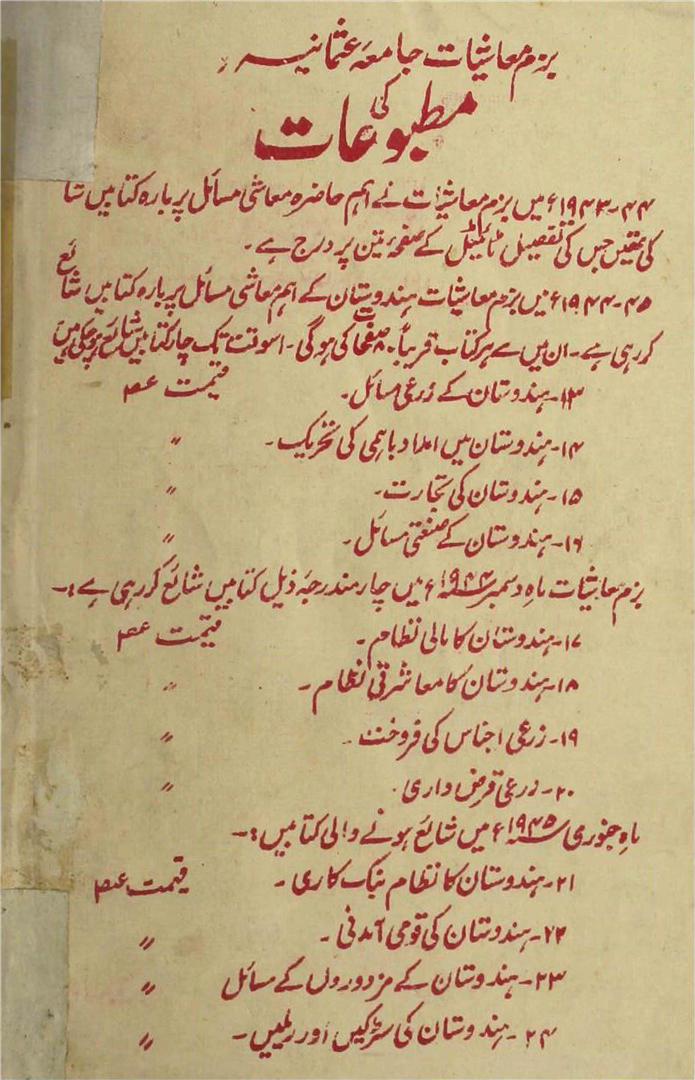 بزم معاشیات جامعہ عثمانیہ
کی
مطبوعات
۴۴-۱۹۴۳ء میں بزم معاشیات نے اہم حاضرہ معاشی مسائل پر بارہ کتابیں شائع
کی تھیں جس کی تفصیل ٹائیٹل کے صفحہ تین پر درج ہے۔
۴۵-۱۹۴۴ء میں بزم معاشیات ہندوستان کے اہم معاشی مسائل پر بارہ کتابیں شائع
کر رہی ہے۔ ان میں سے ہر کتاب قریباً ۸۰ صفحات کی ہوگی۔ اسوقت تک چار کتابیں شائع ہوچکی ہیں
۱۳۔ ہندوستان کے زرعی مسائل۔ قیمت عہ
۱۴۔ ہندوستان میں امداد باہمی کی تحریک۔ ״
۱۵۔ ہندوستان کی تجارت۔ ״
۱۶۔ ہندوستان کے صنعتی مسائل۔ ״
بزم معاشیات ماہ دسمبر ۱۹۴۴ء میں چار مندرجہ ذیل کتابیں شائع کر رہی ہے:۔
۱۷۔ ہندوستان کا مالی نظام۔ قیمت عہ
۱۸۔ ہندوستان کا معاشرتی نظام۔ ״
۱۹۔ زرعی اجناس کی فروخت۔ ״
۲۰۔ زرعی قرض داری۔ ״
ماہ جنوری ۱۹۴۵ء میں شائع ہونے والی کتابیں:۔
۲۱۔ ہندوستان کا نظام بنک کاری۔ قیمت عہ
۲۲۔ ہندوستان کی قومی آمدنی۔ ״
۲۳۔ ہندوستان کے مزدوروں کے مسائل ״
۲۴۔ ہندوستان کی سڑکیں اور ریلیں۔ ״